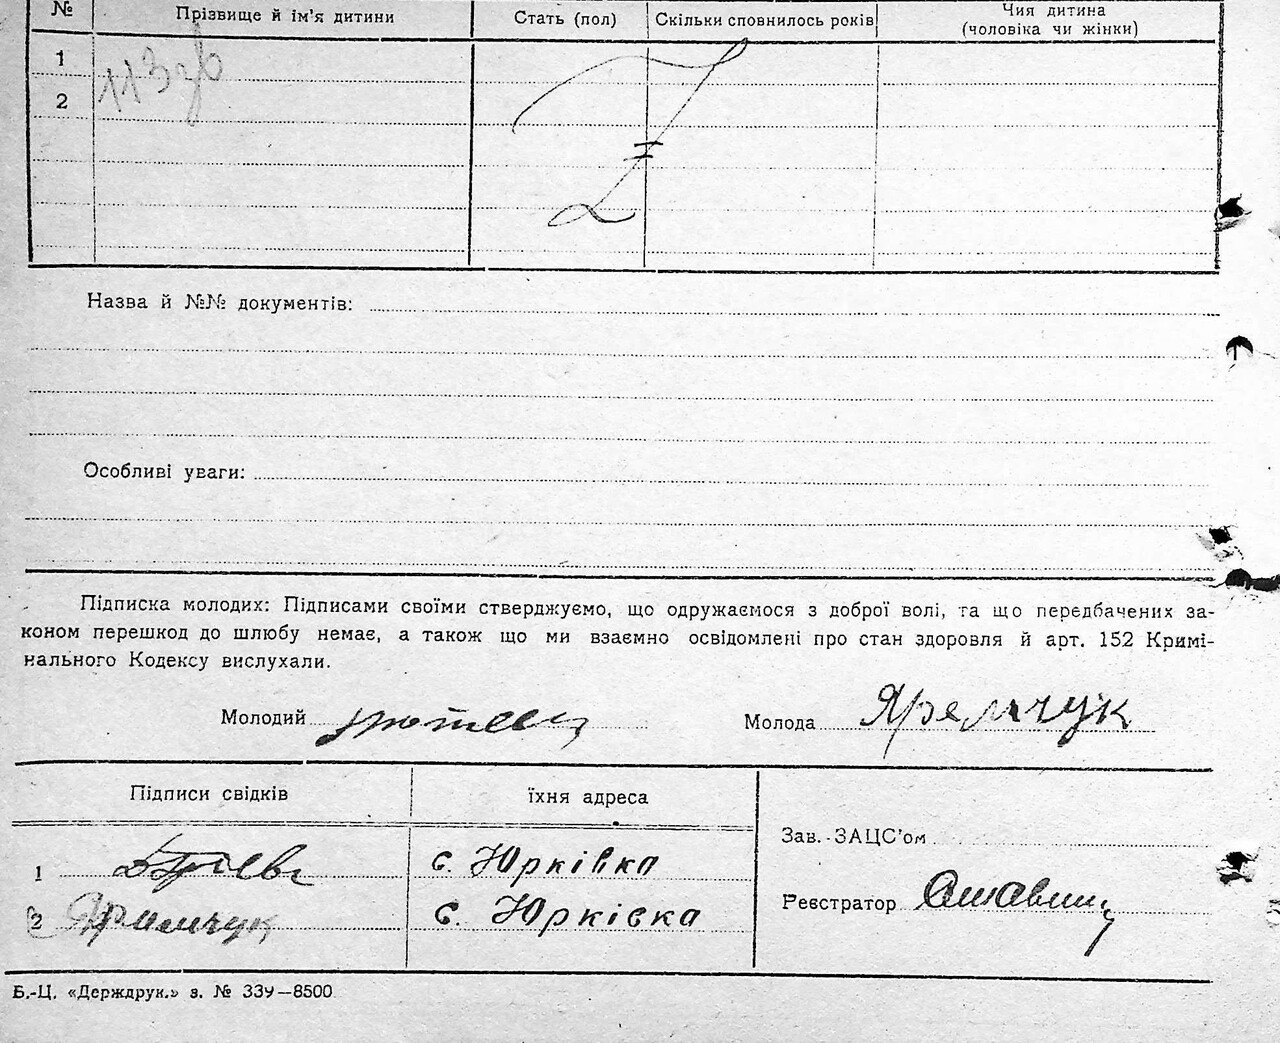 № Прізвище й ім'я дитини Стать (пол) Скільки сповнилось років Чия дитина
(чоловіка чи жінки)
1
2
Назва й №№ документів:
Особливі уваги:
Підписка молодих: Підписами своїми стверджуємо, що одружаємося з доброї волі, та що передбачених за-
коном перешкод до шлюбу немає, а також що ми взаємно освідомлені про стан здоровля й арт. 152 Кримі-
нального Кодексу вислухали.
Молодий Молода Яремчук
Підписи свідків їхня адреса
Зав. ЗАЦС'ом
1 с. Юрківка
Реєстратор
2 Яримчук с. Юрківка
Б.-Ц. «Держдрук.» з. № 339—8500